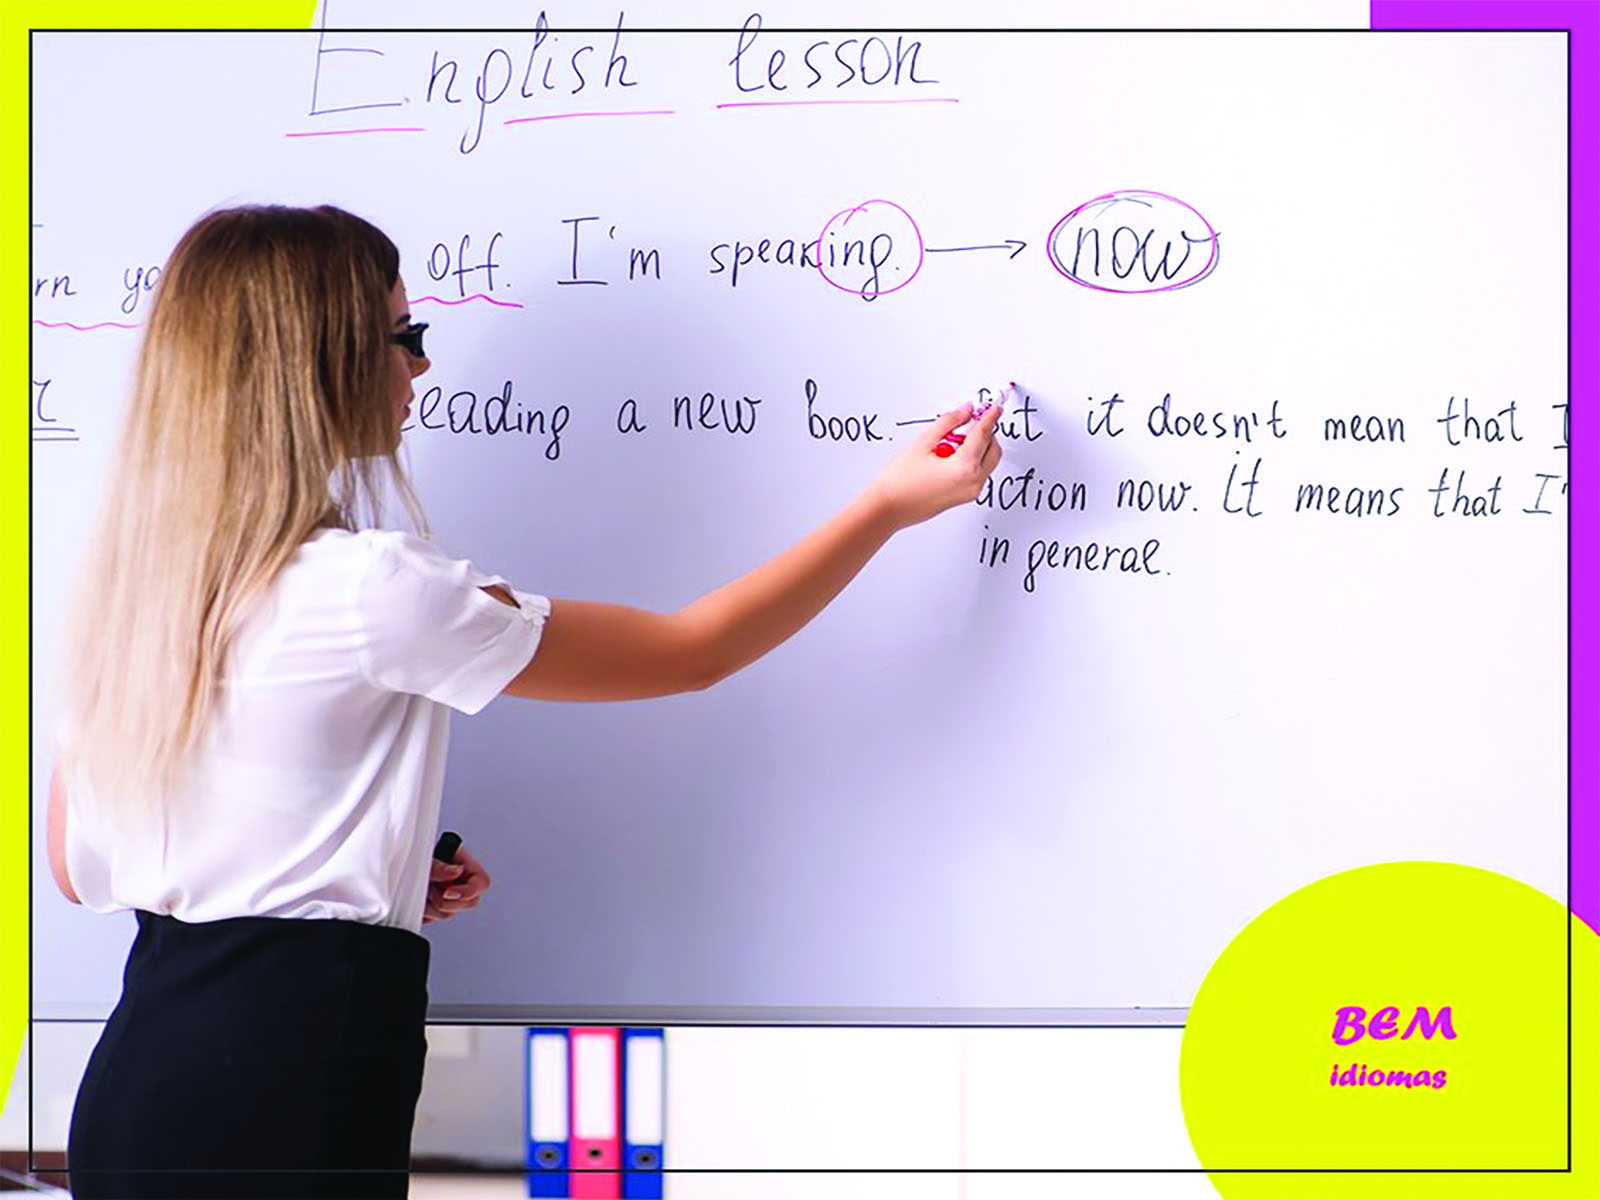 English lesson
off. I'm speaking. now
a new book. but it doesn't mean that I
action now. It means that I'
in general.
BEM
idiomas